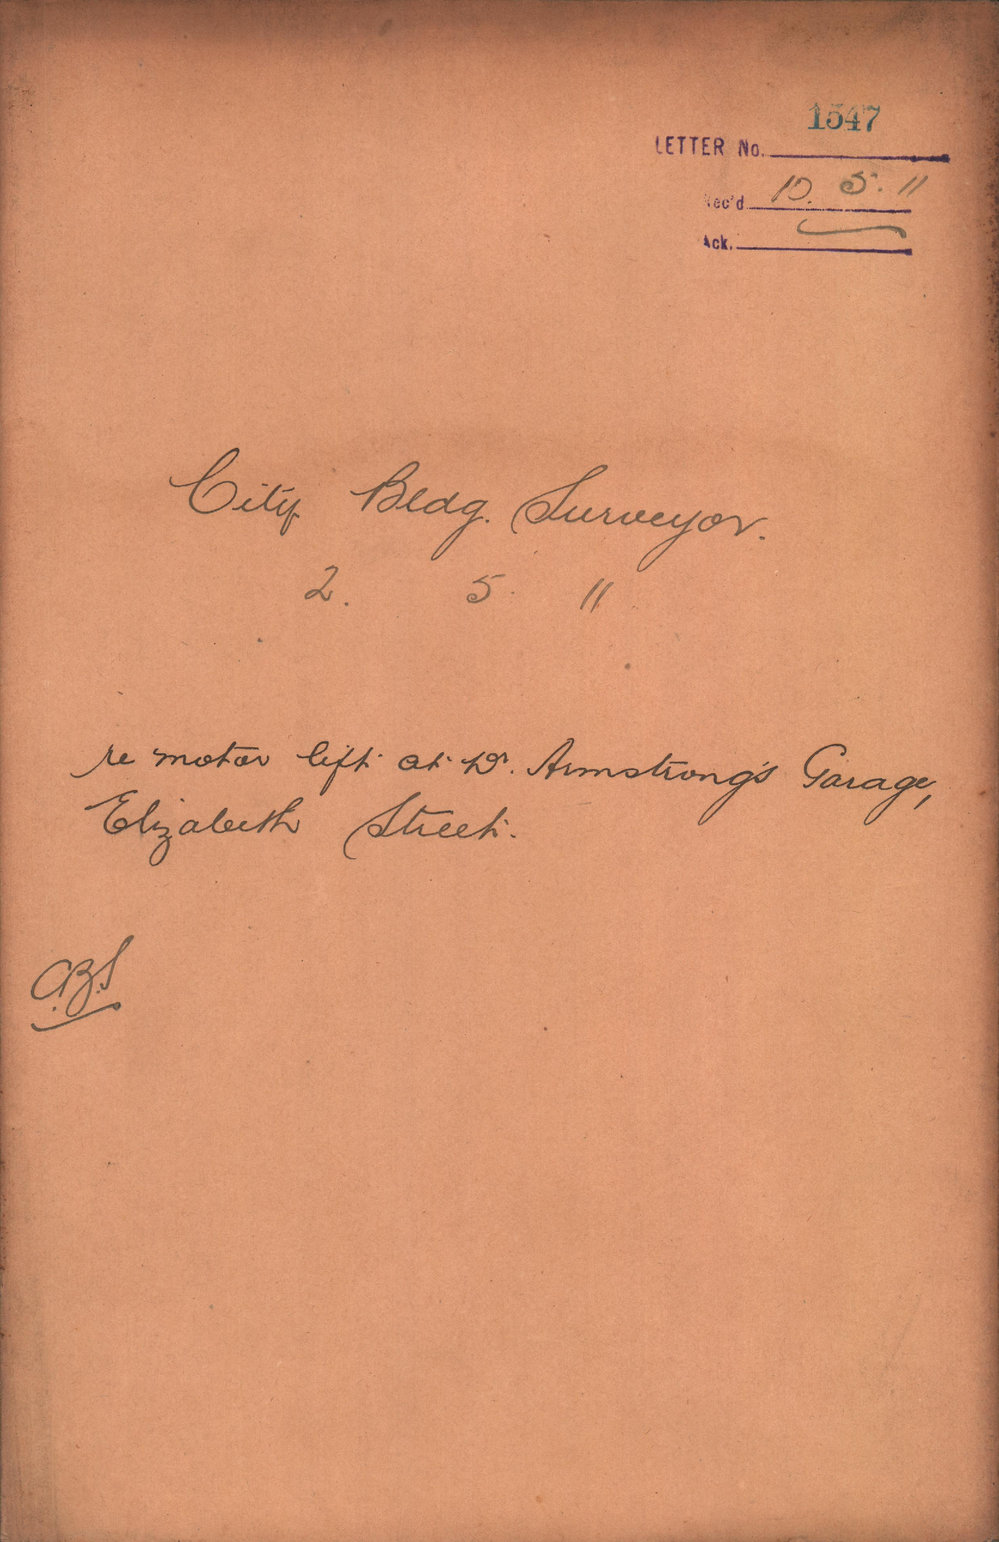 1547
LETTER No.
Rec'd 10. 5. 11
Ack.
City Bldg. Surveyor.
2. 5. 11
re motor lift at Dr. Armstrong's Garage,
Elizabeth Street.
C.B.S